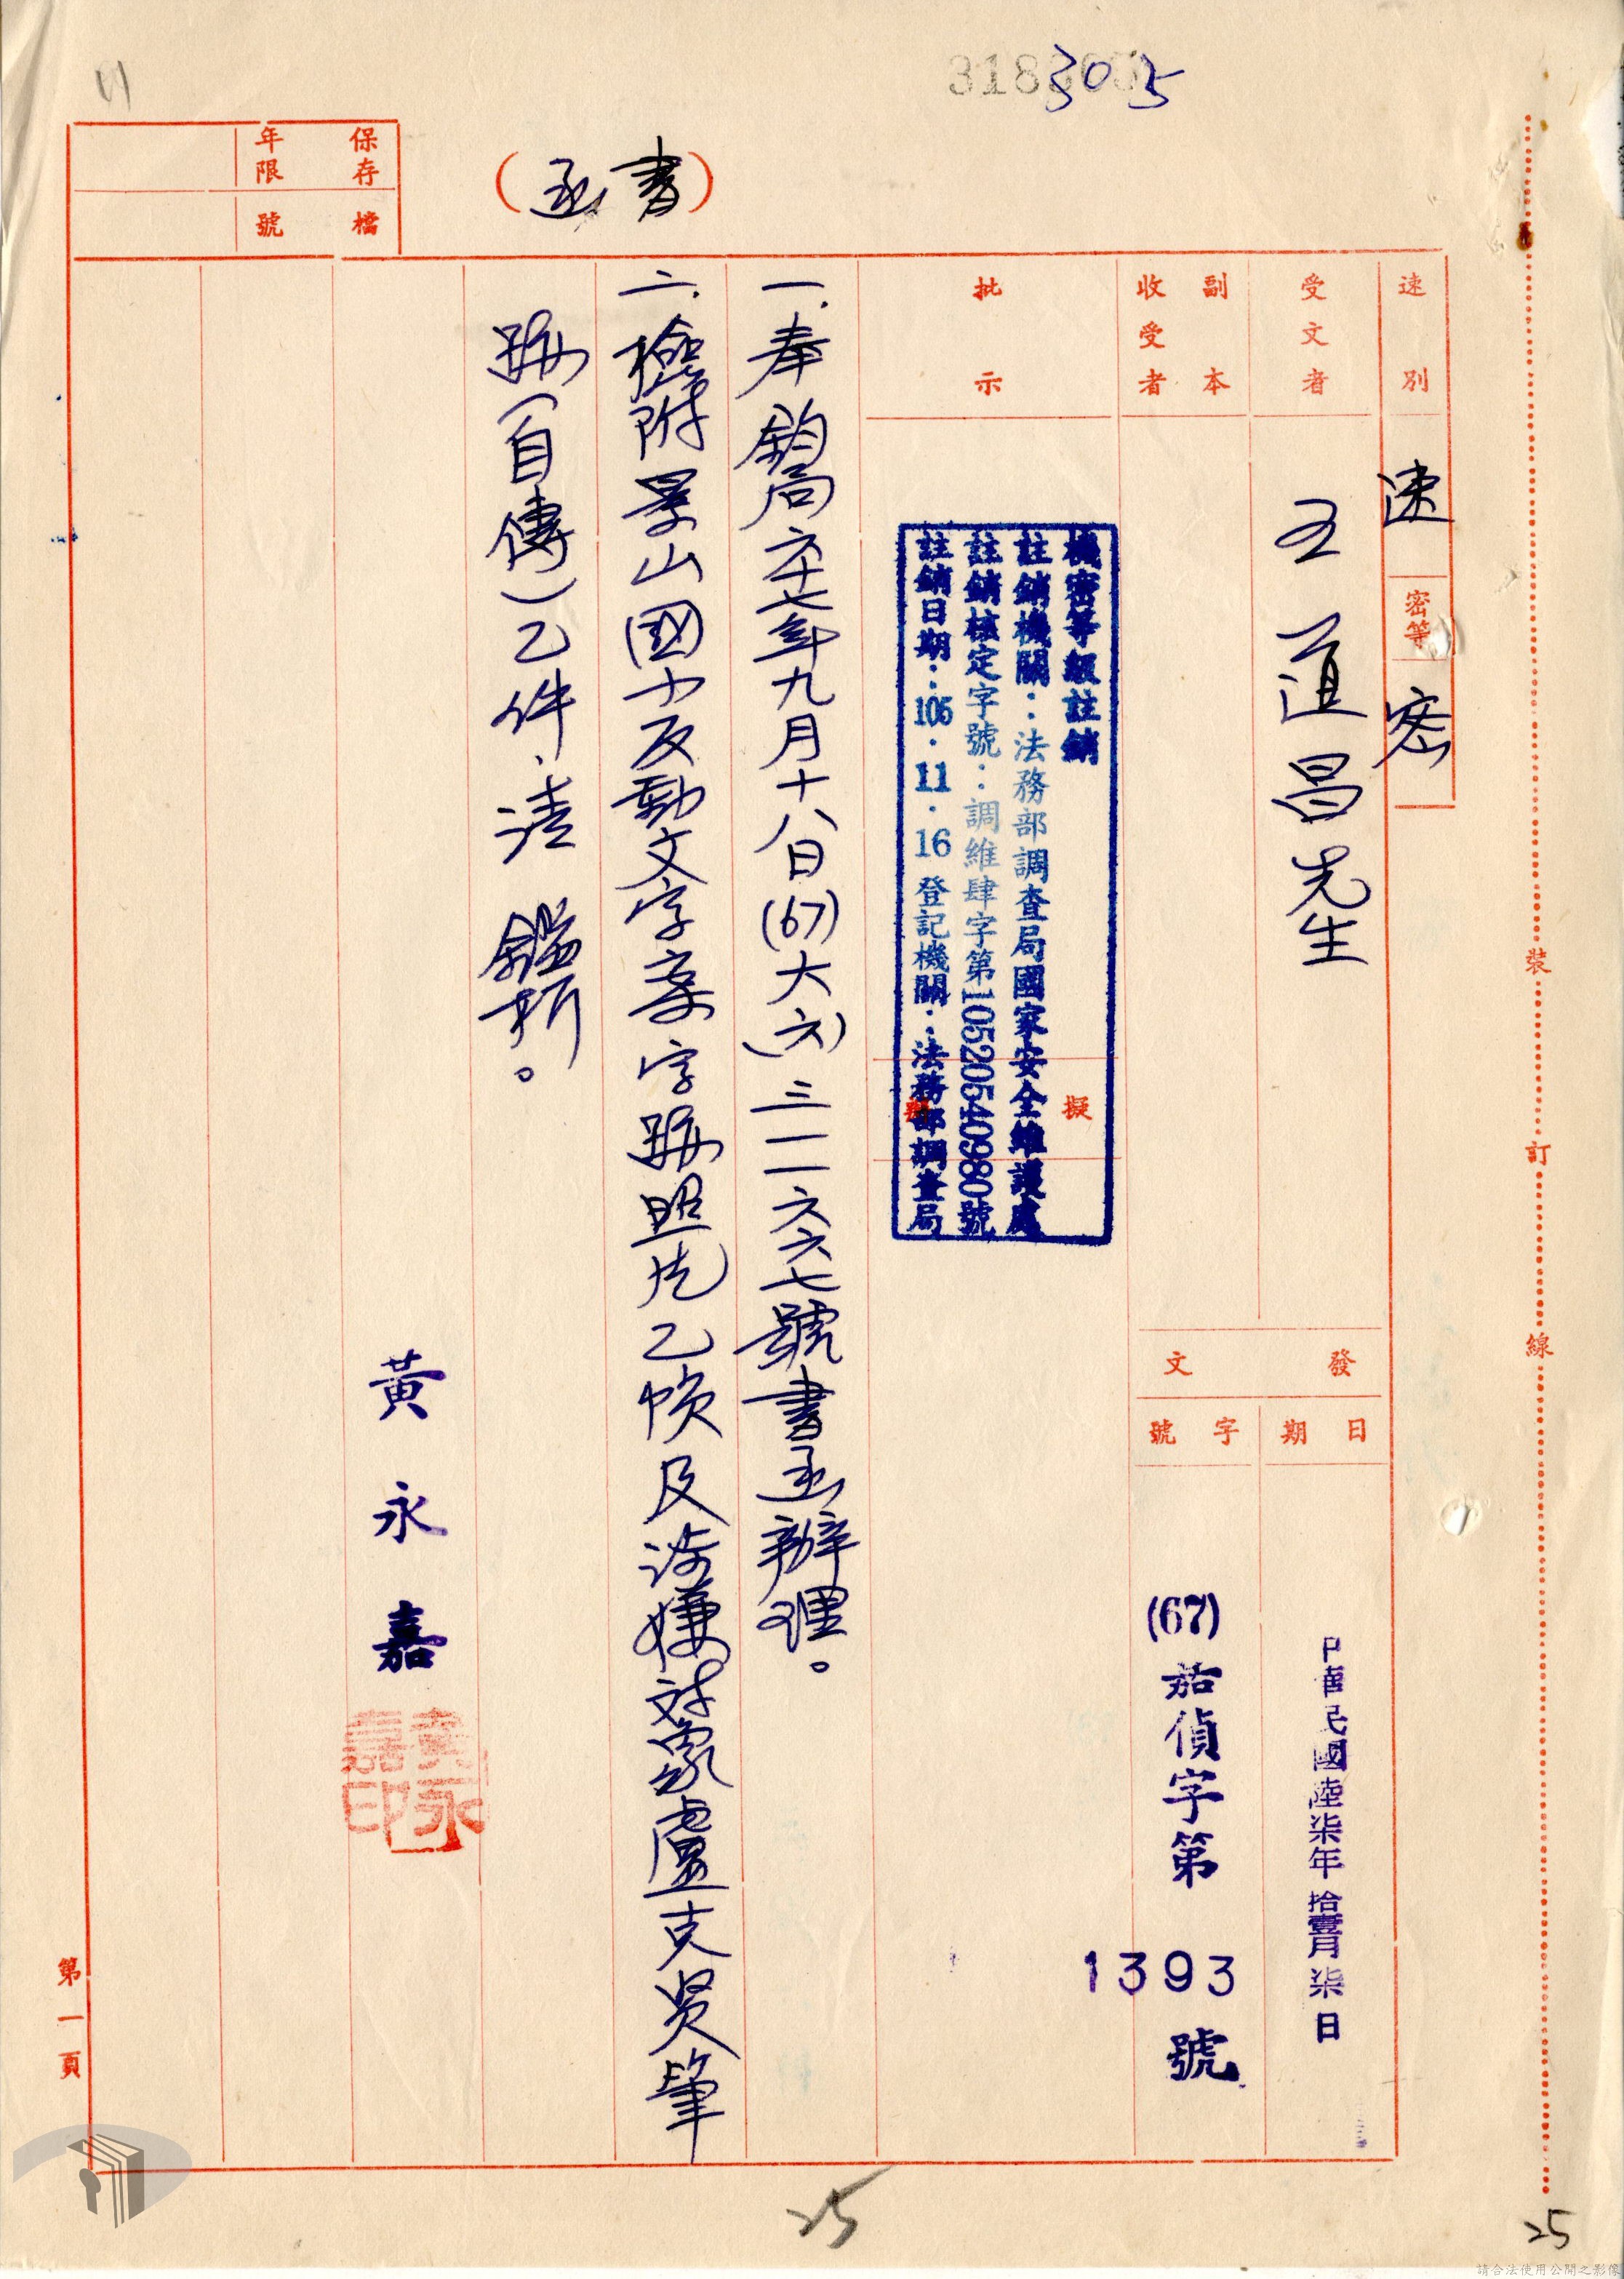 305
(書函)
保存年限
檔號
速別
速
密等
密
受文者
王道昌先生
副本收受者
發文
日期
中華民國陸柒年拾壹月柒日
字號
(67)茄偵字第1393號
批示
擬
機密等級註銷
註銷機關：法務部調查局國家安全維護處
註銷核定字號：調維肆字第10520540980號
註銷日期：105．11．16登記機關：法務部調查局
一.奉 鈞局六十七年九月十八日(67)大(六)三一一六六七號書函辦理。
二.檢附景山國小反動文字案字跡照片乙幀及涉嫌對象盧克賢筆
跡(自傳)乙件、請 鑑析。
黃永嘉
黃永嘉印
裝訂線
第一頁
25
25
請合法使用公開之影像